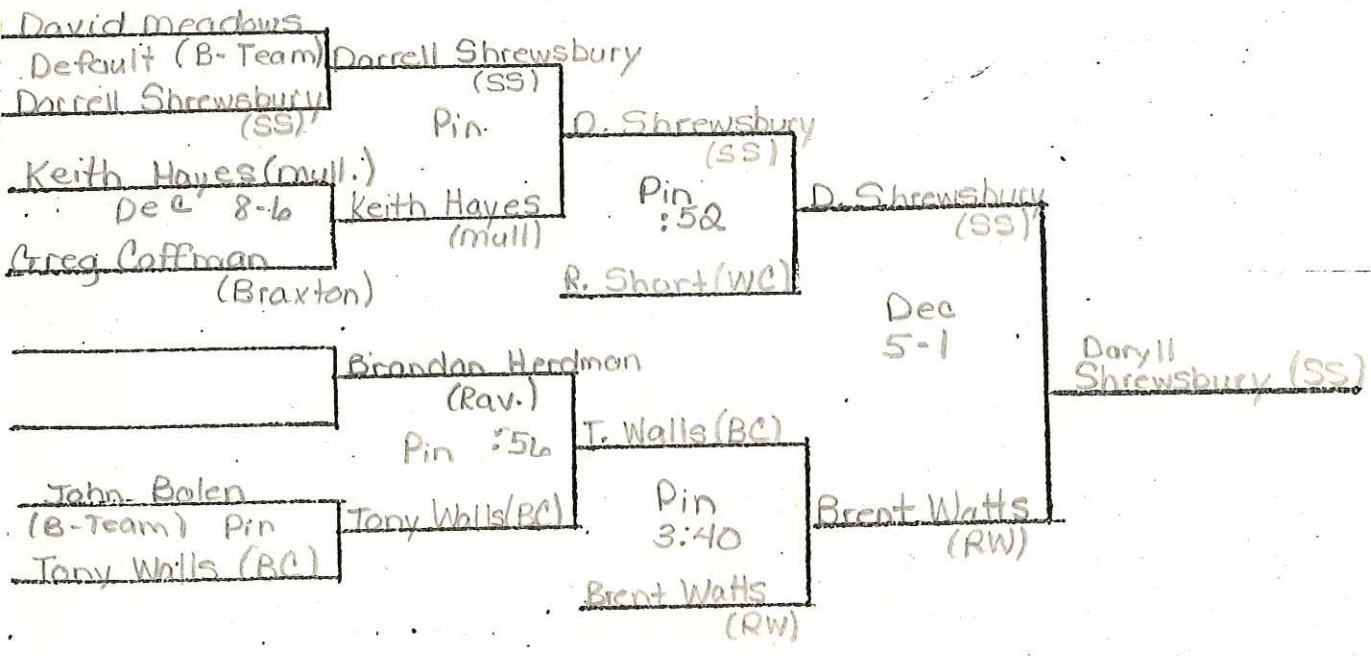 David Meadows
Default (B-Team)
Darrell Shrewsbury
(SS)
Keith Hayes (mull.)
Dec 8-6
Greg Coffman
(Braxton)
John Bolen
(B-Team) Pin
Tony Walls (BC)
Darrell Shrewsbury
(SS)
Pin.
Keith Hayes
(mull)
Brandan Herdman
(Rav.)
Pin :56
Tony Walls (BC)
D. Shrewsbury
(SS)
Pin
:52
R. Short (WC)
T. Walls (BC)
Pin
3:40
Brent Watts
(RW)
D. Shrewsbury
(SS)
Dec
5-1
Brent Watts
(RW)
Daryll
Shrewsbury (SS)